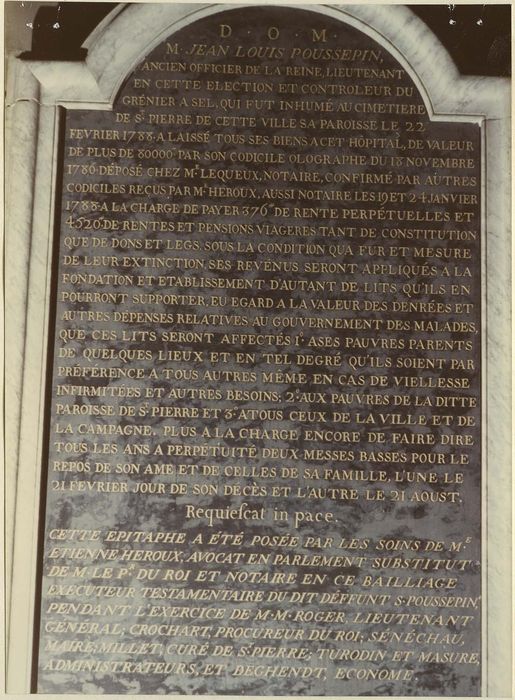 D · O · M ·
M · JEAN LOUIS POUSSEPIN,
ANCIEN OFFICIER DE LA REINE, LIEUTENANT
EN CETTE ELECTION ET CONTROLEUR DU
GRENIER A SEL, QUI FUT INHUMÉ AU CIMETIERE
DE St. PIERRE DE CETTE VILLE SA PAROISSE LE 22
FEVRIER 1788. A LAISSÉ TOUS SES BIENS A CET HÔPITAL, DE VALEUR
DE PLUS DE 80000# PAR SON CODICILE OLOGRAPHE DU 18 NOVEMBRE
1786 DÉPOSÉ CHEZ Mr. LEQUEUX, NOTAIRE, CONFIRMÉ PAR AUTRES
CODICILES REÇUS PAR Mr. HEROUX, AUSSI NOTAIRE LES 19 ET 24 JANVIER
1788. A LA CHARGE DE PAYER 376# DE RENTE PERPÉTUELLES ET
4520# DE RENTES ET PENSIONS VIAGERES TANT DE CONSTITUTION
QUE DE DONS ET LEGS, SOUS LA CONDITION QU'A FUR ET MESURE
DE LEUR EXTINCTION, SES REVENUS SERONT APPLIQUÉS A LA
FONDATION ET ETABLISSEMENT D'AUTANT DE LITS QU'ILS EN
POURRONT SUPPORTER, EU EGARD A LA VALEUR DES DENRÉES ET
AUTRES DÉPENSES RELATIVES AU GOUVERNEMENT DES MALADES,
QUE CES LITS SERONT AFFECTÉS 1°. A SES PAUVRES PARENTS
DE QUELQUES LIEUX ET EN TEL DEGRÉ QU'ILS SOIENT PAR
PRÉFÉRENCE A TOUS AUTRES MÊME EN CAS DE VIELLESSE
INFIRMITÉES ET AUTRES BESOINS; 2°. AUX PAUVRES DE LA DITTE
PAROISSE DE St. PIERRE ET 3°. A TOUS CEUX DE LA VILLE ET DE
LA CAMPAGNE. PLUS A LA CHARGE ENCORE DE FAIRE DIRE
TOUS LES ANS A PERPÉTUITÉ DEUX MESSES BASSES POUR LE
REPOS DE SON AME ET DE CELLES DE SA FAMILLE, L'UNE LE
21 FEVRIER JOUR DE SON DÉCÈS ET L'AUTRE LE 21 AOUST.
Requiescat in pace.
CETTE EPITAPHE A ÉTÉ POSÉE PAR LES SOINS DE M.E
ETIENNE HEROUX, AVOCAT EN PARLEMENT, SUBSTITUT
DE M. LE Pr. DU ROI ET NOTAIRE EN CE BAILLIAGE
EXECUTEUR TESTAMENTAIRE DU DIT DÉFFUNT S. POUSSEPIN,
PENDANT L'EXERCICE DE M.M. ROGER, LIEUTENANT
GÉNÉRAL; CROCHART, PROCUREUR DU ROI; SÉNÉCHAU,
MAIRE; MILLET, CURÉ DE St. PIERRE; TURODIN ET MASURE,
ADMINISTRATEURS, ET DEGHENDT, ECONOME.